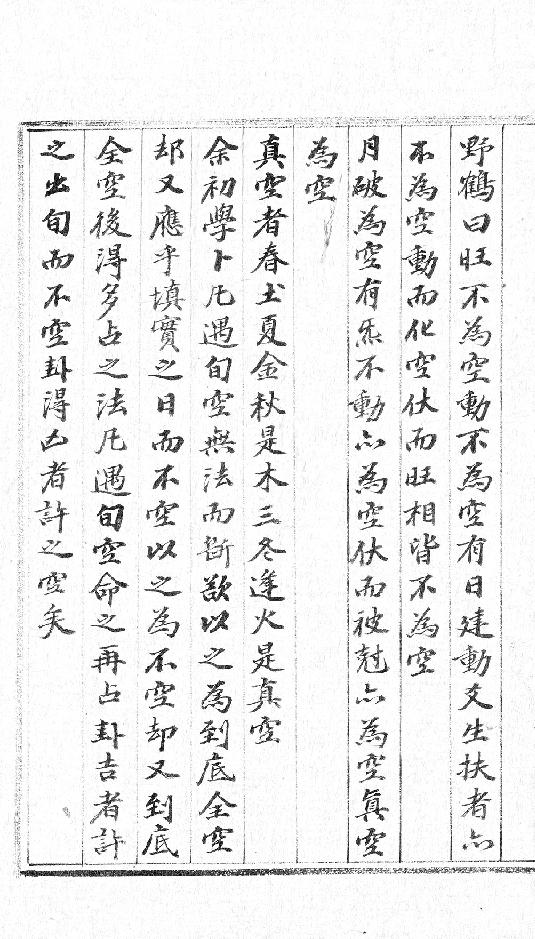 野鶴曰旺不為空動不為空有日建動爻生扶者亦
不為空動而化空伏而旺相皆不為空
月破為空有炁不動亦為空伏而被尅亦為空真空
為空
真空者春土夏金秋是木三冬逢火是真空
余初學卜凡遇旬空無法而斷欲以之為到底全空
却又應乎填實之日而不空以之為不空却又到底
全空後得多占之法凡遇旬空命之再占卦吉者許
之出旬而不空卦得凶者許之空矣